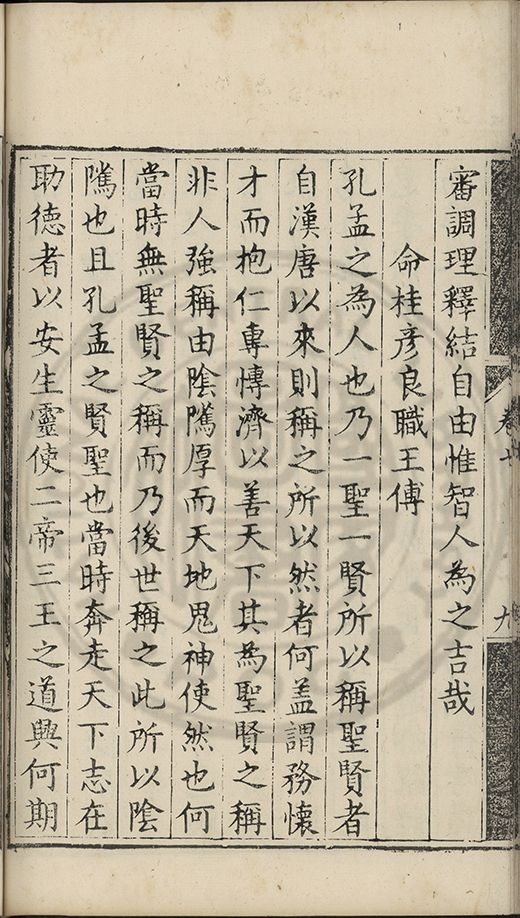 審調理釋結自由惟智人為之吉哉
命桂彥良職王傅
孔孟之為人也乃一聖一賢所以稱聖賢者
自漢唐以來則稱之所以然者何盖謂務懷
才而抱仁專愽濟以善天下其為聖賢之稱
非人強稱由隂隲厚而天地鬼神使然也何
當時無聖賢之稱而乃後世稱之此所以隂
隲也且孔孟之賢聖也當時奔走天下志在
助德者以安生靈使二帝三王之道興何期
卷七
九